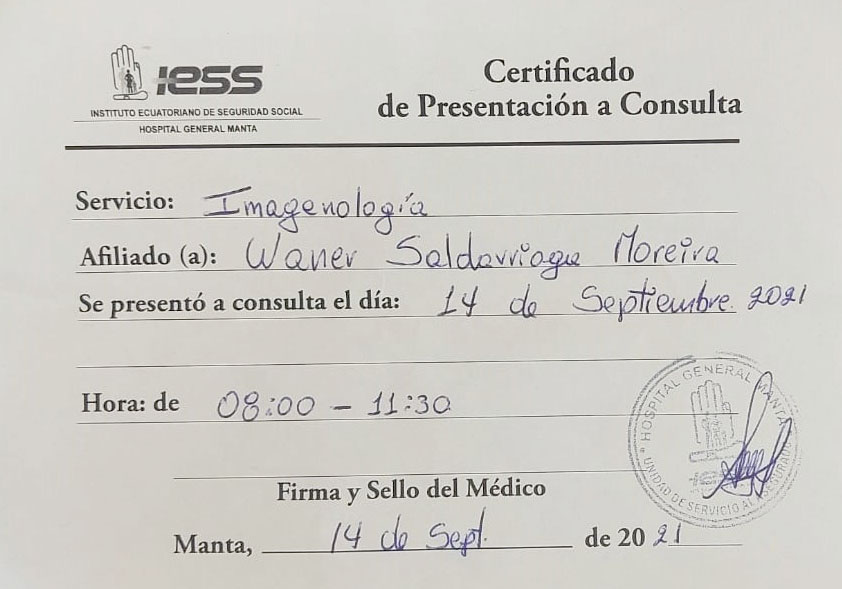 IESS
INSTITUTO ECUATORIANO DE SEGURIDAD SOCIAL
HOSPITAL GENERAL MANTA
Certificado
de Presentación a Consulta
Servicio: Imagenología
Afiliado (a): Waner Saldarriaga Moreira
Se presentó a consulta el día: 14 de Septiembre 2021
Hora: de 08:00 - 11:30
HOSPITAL GENERAL MANTA
IESS
UNIDAD DE SERVICIO AL ASEGURADO
Firma y Sello del Médico
Manta, 14 de Sept. de 2021